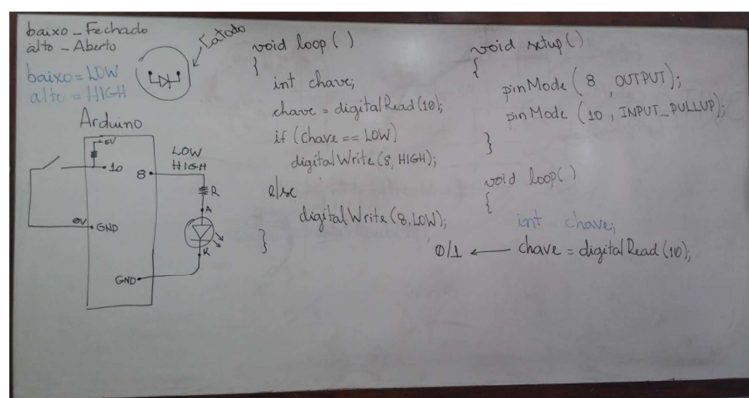 baixo_Fechado
alto_Aberto
Catodo
baixo=LOW
alto = HIGH
Arduino
5V
10
0V
GND
8
LOW
HIGH
R
A
K
GND
void loop()
{
int chave;
chave = digitalRead(10);
if (chave == LOW)
digitalWrite(8, HIGH);
else
digitalWrite(8, LOW);
}
void setup()
{
pinMode(8, OUTPUT);
pinMode(10, INPUT_PULLUP);
}
void loop()
{
int chave;
0/1 ← chave = digitalRead(10);